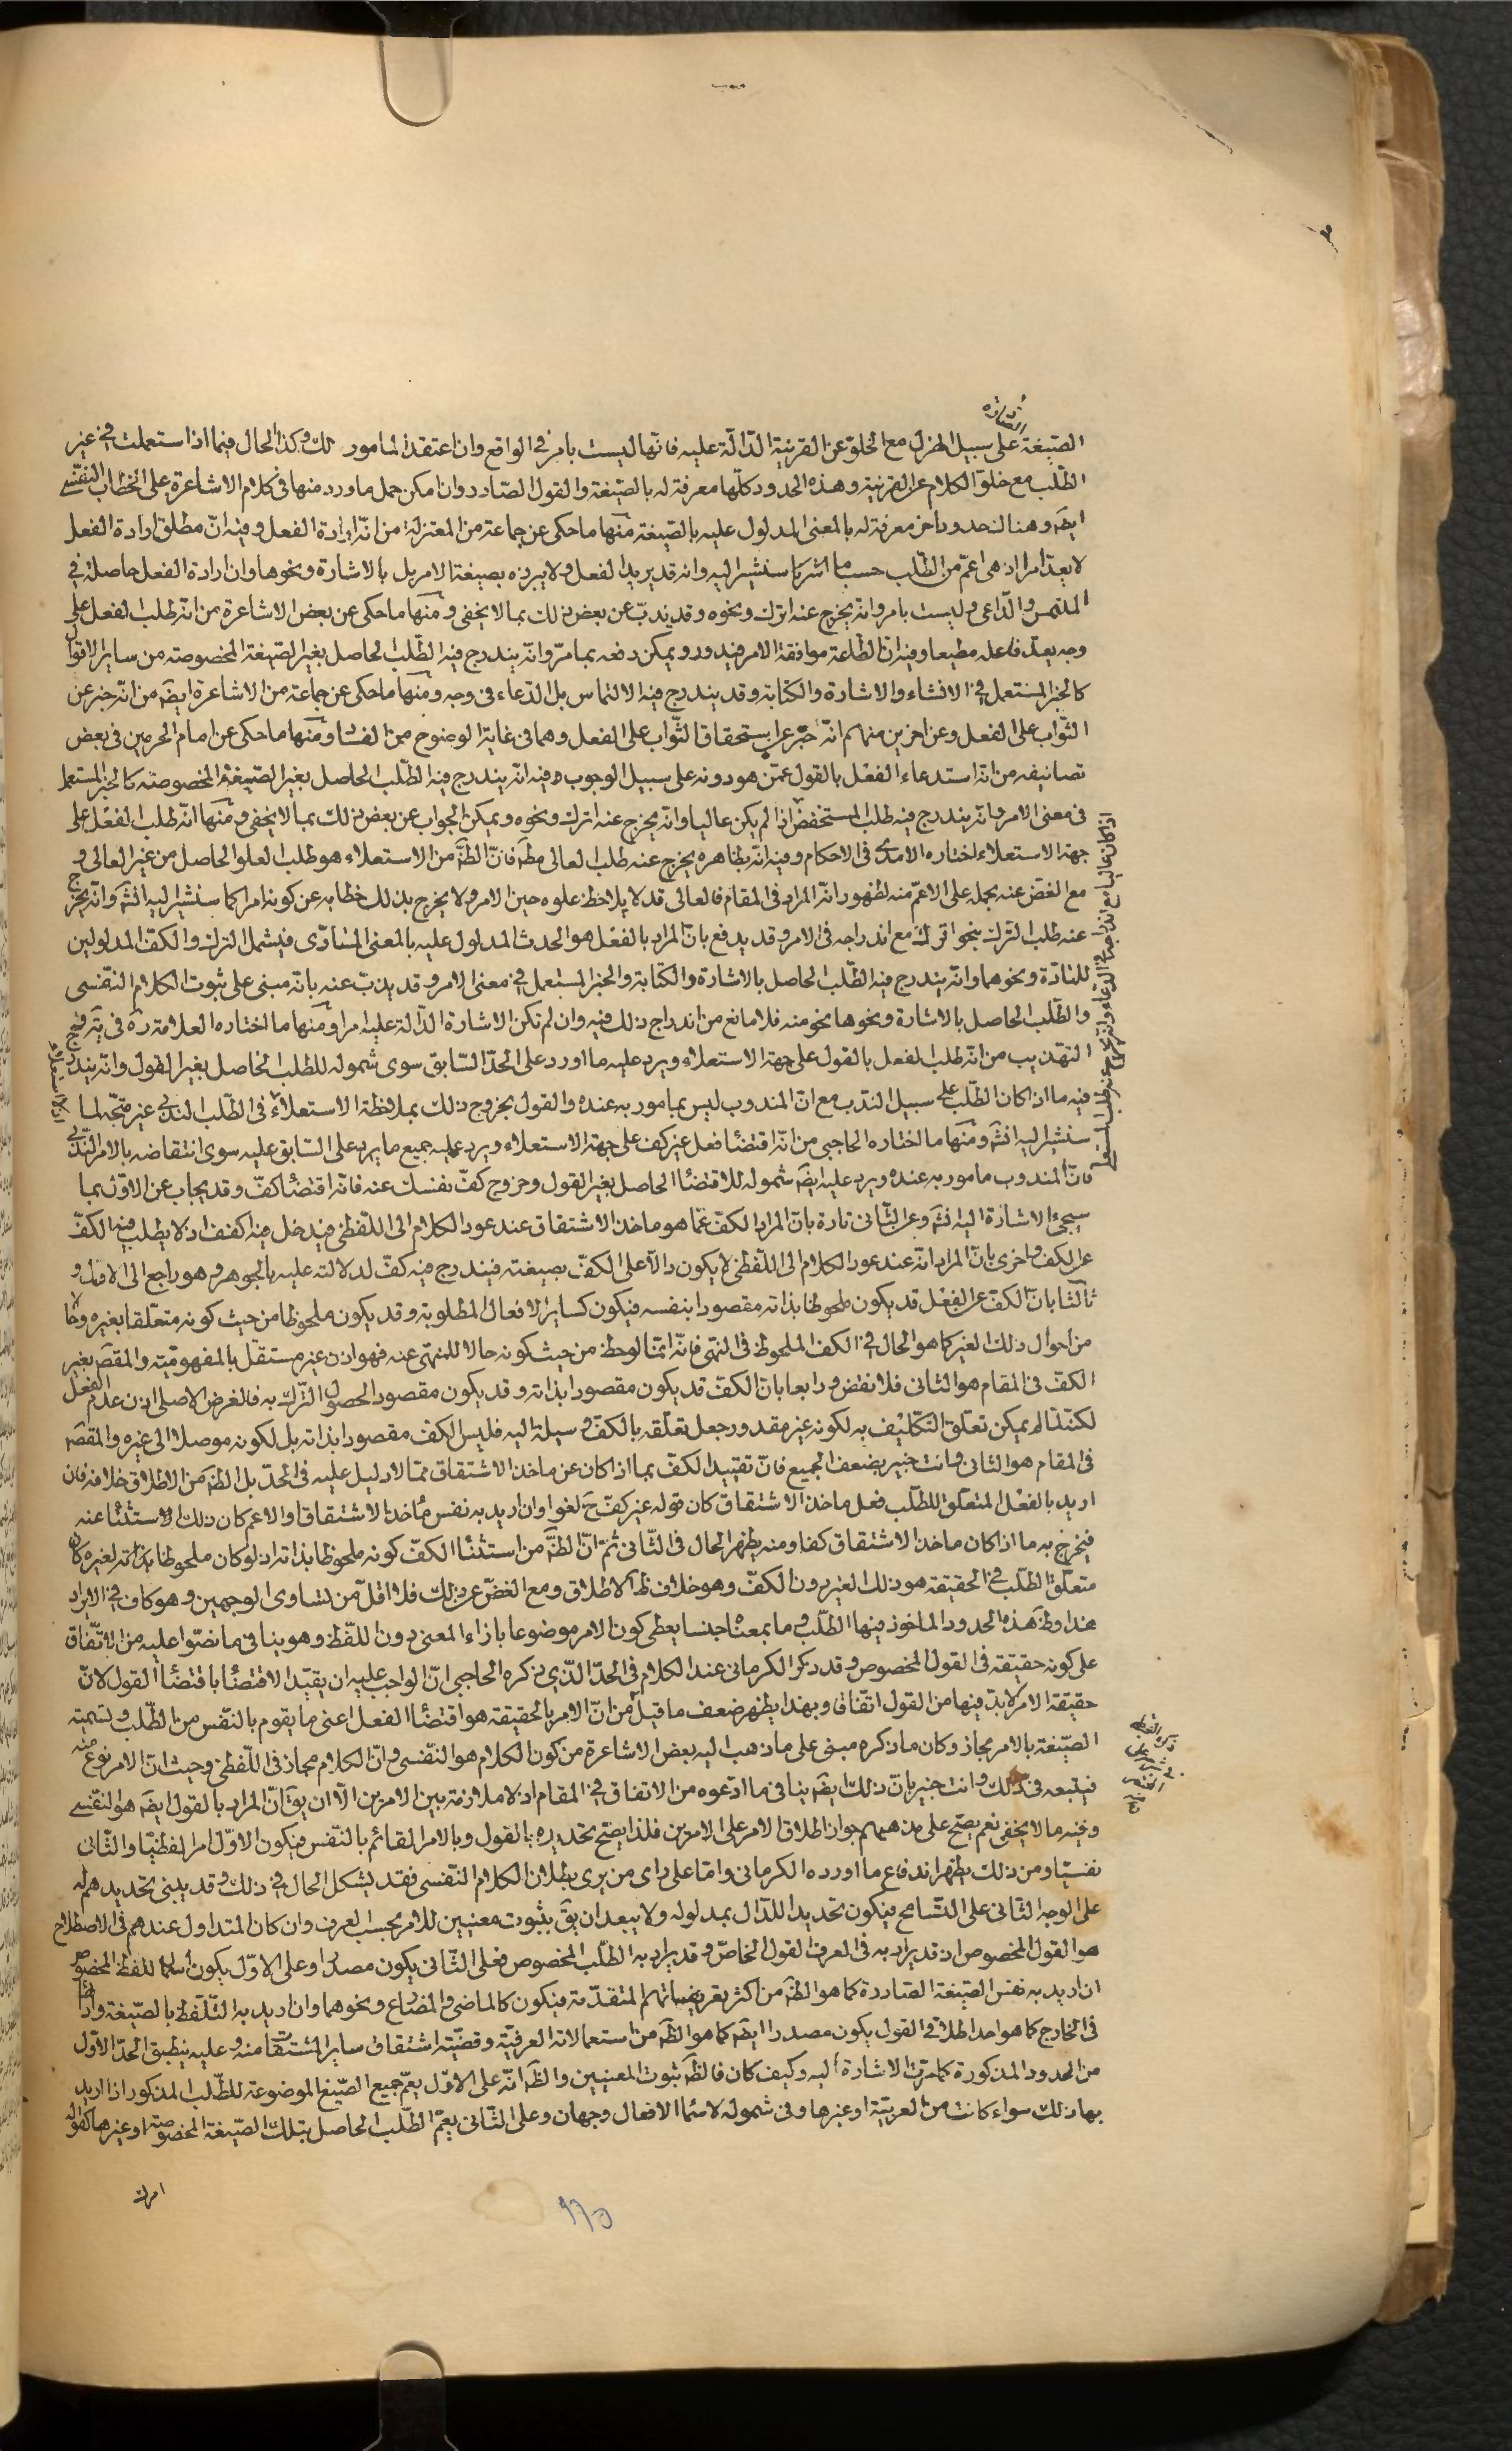 الصادرة
الصّيغة على سبيل الهزل مع الخلوّ عن القرينة الدّالّة عليه فانّها ليست بامر في الواقع وان اعتقد المامور ذلك وكذا الحال فيما اذا استعملت في غير
الطّلب مع خلوّ الكلام عن القرينة وهذه الحدود كلّها معرفة له بالصّيغة والقول الصّادر وان امكن حمل ما ورد منها في كلام الاشاعرة على الخطاب النّفسي
ايضَ وهنا لك حدود اخر معرفة له بالمعنى المدلول عليه بالصّيغة منها ما حكى عن جماعة من المعتزلة من انّه ارادة الفعل وفيه انّ مطلق ارادة الفعل
لا يعدّ امرا اذ هى اعمّ من الطّلب حسب ما اشرنا سنشير اليه وانه قد يريد الفعل ولا يبرزه بصيغة الامر بل بالاشارة ونحوها وان ارادة الفعل حاصلة في
الملتمس والدّاعى وليست بامر وانّه يخرج عنه اترك ونحوه وقد يذبّ عن بعض ذلك بما لا يخفى ومنها ما حكى عن بعض الاشاعرة من انّه طلب الفعل على
وجه يعدّ فاعله مطيعا وفيه انّ الطّاعة موافقة الامر فيدور ويمكن دفعه بما مرّ وانّه يندرج فيه الطّلب الحاصل بغير الصّيغة المخصوصة من ساير الاقوال
كالخبر المستعمل في الانشاء والاشارة والكتابة وقد يندرج فيه الالتماس بل الدّعاء في وجه ومنها ما حكى عن جماعة من الاشاعرة ايضَ من انّه خبر عن
الثّواب على الفعل وعن اخرين منهم انّه خبر عن استحقاق الثّواب على الفعل وهما في غاية الوضوح من الفسّا ومنها ما حكى عن امام الحرمين في بعض
تصانيفه من انّه استدعاء الفعل بالقول عمّن هو دونه على سبيل الوجوب وفيه انّه يندرج فيه الطّلب الحاصل بغير الصّيغة المخصوصة كالخبر المستعمل
في معنى الامر وانّه يندرج فيه طلب المستخفض اذا لم يكن عاليا وانّه يخرج عنه اترك ونحوه ويمكن الجواب عن بعض ذلك بما لا يخفى ومنها انّه طلب الفعل على
جهة الاستعلاء اختاره الامدى في الاحكام وفيه انّه بظاهره يخرج عنه طلب العالى مطَ فانّ الظَّ من الاستعلاء هو طلب العلو الحاصل من غير العالى و
مع الغضّ عنه بحمله على الاعمّ منه لظهور انّه المراد في المقام فالعالى قد لا يلاحظ علوه حين الامر ولا يخرج بذلك خطابه عن كونه امرا كما سنشير اليه انشَ وانّه يخرج
عنه طلب الترك بنحو اترك مع اندراجه في الامر وقد يدفع بانّ المراد بالفعل هو الحدث المدلول عليه بالمعنى المادّى فيشمل الترك والكفّ المدلولين
للمادّة ونحوهما وانّه يندرج فيه الطّلب الحاصل بالاشارة والكتابة والخبر المستعمل في معنى الامر وقد يذبّ عنه بانّه مبنى على ثبوت الكلام النّفسى
والطّلب الحاصل بالاشارة ونحوها نحو منه فلا مانع من اندراج ذلك فيه وان لم تكن الاشارة الدّالة عليه امرا ومنها ما اختاره العلامة ره في يَه وفى
التهذيب من انّه طلب الفعل بالقول على جهة الاستعلاء ويرد عليه ما اورد على الحدّ السّابق سوى شموله للطلب الحاصل بغير القول وانّه يندرج
فيه ما اذا كان الطّلب على سبيل النّدب مع انّ المندوب ليس بمامور به عنده والقول بخروج ذلك بملاحظة الاستعلاء في الطّلب الندبى غير متّجه لما
سنشير اليه انشَ ومنها ما اختاره الحاجبى من انّه اقتضاء فعل غير كفّ على جهة الاستعلاء ويرد عليه جميع ما يرد على السّابق عليه سوى انتقاضه بالامر النّدبى
فانّ المندوب مامور به عنده ويرد عليه ايضَ شموله للاقتضاء الحاصل بغير القول وخروج كفّ نفسك عنه فانّه اقتضاء كفّ وقد يجاب عن الاوّل بما
سيجئ الاشارة اليه انشَ وعن الثّانى تارة بانّ المراد الكفّ عمّا هو ماخذ الاشتقاق عند عود الكلام الى اللّفظى فيدخل فيه اكفف اذ لا يطلب فيه الكفّ
عن الكفّ واخرى بانّ المراد انّه عند عود الكلام الى اللّفظى لا يكون دالّا على الكفّ بصيغته فيندرج فيه كفّ لدلالته عليه بالجوهر وهو راجع الى الاوّل و
ثالثا بانّ الكفّ عن الفعل قد يكون ملحوظا بذاته مقصودا بنفسه فيكون كساير الافعال المطلوبة وقد يكون ملحوظا من حيث كونه متعلّقا بغيره وحالا
من احوال ذلك الغير كما هو الحال في الكفّ الملحوظ في النهى فانّه انّما لوحظ من حيث كونه حالا للمنهىّ عنه فهو اذن غير مستقلّ بالمفهوميّة والمقصَ بغير
الكفّ في المقام هو الثانى فلا نقض ورابعا بانّ الكفّ قد يكون مقصودا بذاته وقد يكون مقصود الحصول التّرك به فالغرض الاصلى اذن عدم الفعل
لكنّه لما لم يمكن تعلّق التّكليف به لكونه غير مقدور جعل تعلّقه بالكفّ وسيلة اليه فليس الكفّ مقصودا بذاته بل لكونه موصلا الى غيره والمقصَ
في المقام هو الثانى وانت خبير بضعف الجميع فانّ تقييد الكفّ بما اذا كان عن ماخذ الاشتقاق ممّا لا دليل عليه في الحدّ بل الظَّ من الاطلاق خلافه فان
اريد بالفعل المتعلّق للطّلب فعل ماخذ الاشتقاق كان قوله غير كفّ حَ لغوا وان اريد به نفس ماخذ الاشتقاق او الاعمّ كان ذلك الاستثناء عنه
فيخرج به ما اذا كان ماخذ الاشتقاق كفا ومنه يظهر الحال في الثّانى ثمّ انّ الظَّ من استثناء الكفّ كونه ملحوظا بذاته اذ لو كان ملحوظا بذاته لغيره كان
متعلّق الطّلب في الحقيقة هو ذلك الغير دون الكفّ وهو خلاف ظَ الاطلاق ومع الغضّ عن ذلك فلا اقلّ من تساوى الوجهين وهو كاف في الايراد
هذا وظَ هذه الحدود الماخوذ فيها الطّلب وما بمعناه جنسا يعطى كون الامر موضوعا بازاء المعنى دون اللّفظ وهو ينافى ما نصّوا عليه من الاتّفاق
على كونه حقيقة في القول المخصوص وقد ذكر الكرمانى عند الكلام في الحدّ الّذي ذكره الحاجبى انّ الواجب عليه ان يقيّد الاقتضاء باقتضاء القول لانّ
حقيقة الامر لا بدّ فيها من القول اتّفاقا وبهذا يظهر ضعف ما قيل من انّ الامر بالحقيقة هو اقتضاء الفعل اعنى ما يقوم بالنّفس من الطّلب وتسمية
الصّيغة بالامر مجاز وكان ما ذكره مبنى على ما ذهب اليه بعض الاشاعرة من كون الكلام هو النّفسى وانّ الكلام مجاز في اللّفظى وحيث انّ الامر نوع منه
فيتبعه في ذلك وانت خبير بانّ ذلك ايضَ ينافى ما ادّعوه من الاتفاق في المقام اذ لا ملازمة بين الامرين الّا ان يقَ انّ المراد بالقول ايضَ هو النفسى
وفيه ما لا يخفى نعم يصحّ على مذهبهم جواز اطلاق الامر على الامرين فلذا يصحّ تحديده بالقول وبالامر القائم بالنّفس فيكون الاوّل امرا لفظيّا والثّانى
نفسيّا ومن ذلك يظهر اندفاع ما اورده الكرمانى وامّا على راى من يرى بطلان الكلام النّفسى فقد يشكل الحال في ذلك وقد يبنى تحديدهم له
على الوجه الثّانى على التّسامح فيكون تحديدا للدّال بمدلوله ولا يبعد ان يقَ بثبوت معنيين للامر بحسب العرف وان كان المتداول عندهم في الاصطلاح
هو القول المخصوص اذ قد يراد به في العرف القول الخاصّ وقد يراد به الطّلب المخصوص فعلى الثّانى يكون مصدرا وعلى الاوّل يكون اسما للفظ المخصوص
ان اريد به نفس الصّيغة الصّادرة كما هو الظَّ من اكثر تعريفاتهم المتقدّمة فيكون كالماضى والمضارع ونحوهما وان اريد به التّلفّظ بالصّيغة واداؤها
في الخارج كما هو احد اطلاقى القول يكون مصدرا ايضَ كما هو الظَّ من استعمالاته العرفيّة وقضيّة اشتقاق ساير المشتقات منه وعليه ينطبق الحدّ الاوّل
من الحدود المذكورة كما مرّت الاشارة اليه وكيف كان فالظَّ ثبوت المعنيين والظَّ انّه على الاوّل يعمّ جميع الصّيغ الموضوعة للطّلب المذكور اذا اريد
بها ذلك سواء كانت من العربيّة او غيرها وفى شموله لاسماء الافعال وجهان وعلى الثّانى يعمّ الطّلب الحاصل بتلك الصّيغة المخصوصة او غيرها كقوله
امرك